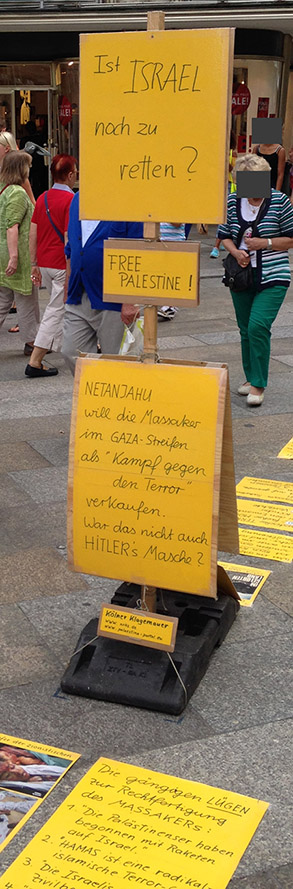 SALE!
Ist ISRAEL
noch zu
retten?
FREE
PALESTINE!
NETANJAHU
will die Massaker
im GAZA-Streifen
als "Kampf gegen
den Terror"
verkaufen.
War das nicht auch
HITLER's Masche?
Kölner Klagemauer
Die gängigen LÜGEN
zur Rechtfertigung
des MASSAKERs:
1. "Die Palästinenser haben
begonnen mit Raketen
auf Israel."
2. "HAMAS ist eine radikal
islamische Terror-
3. "Die Israelis
4.